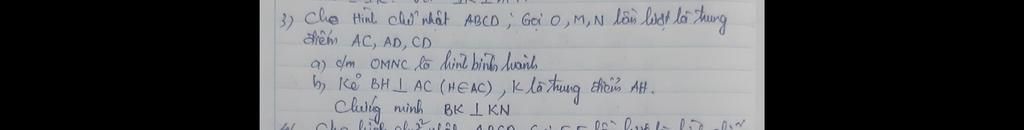 3) Cho Hình chữ nhật ABCD ; Gọi O, M, N lần lượt là trung
điểm AC, AD, CD
a) c/m OMNC là hình bình hành
b, Kẻ BH ⊥ AC (H∈AC), K là trung điểm AH.
Chứng minh BK ⊥ KN